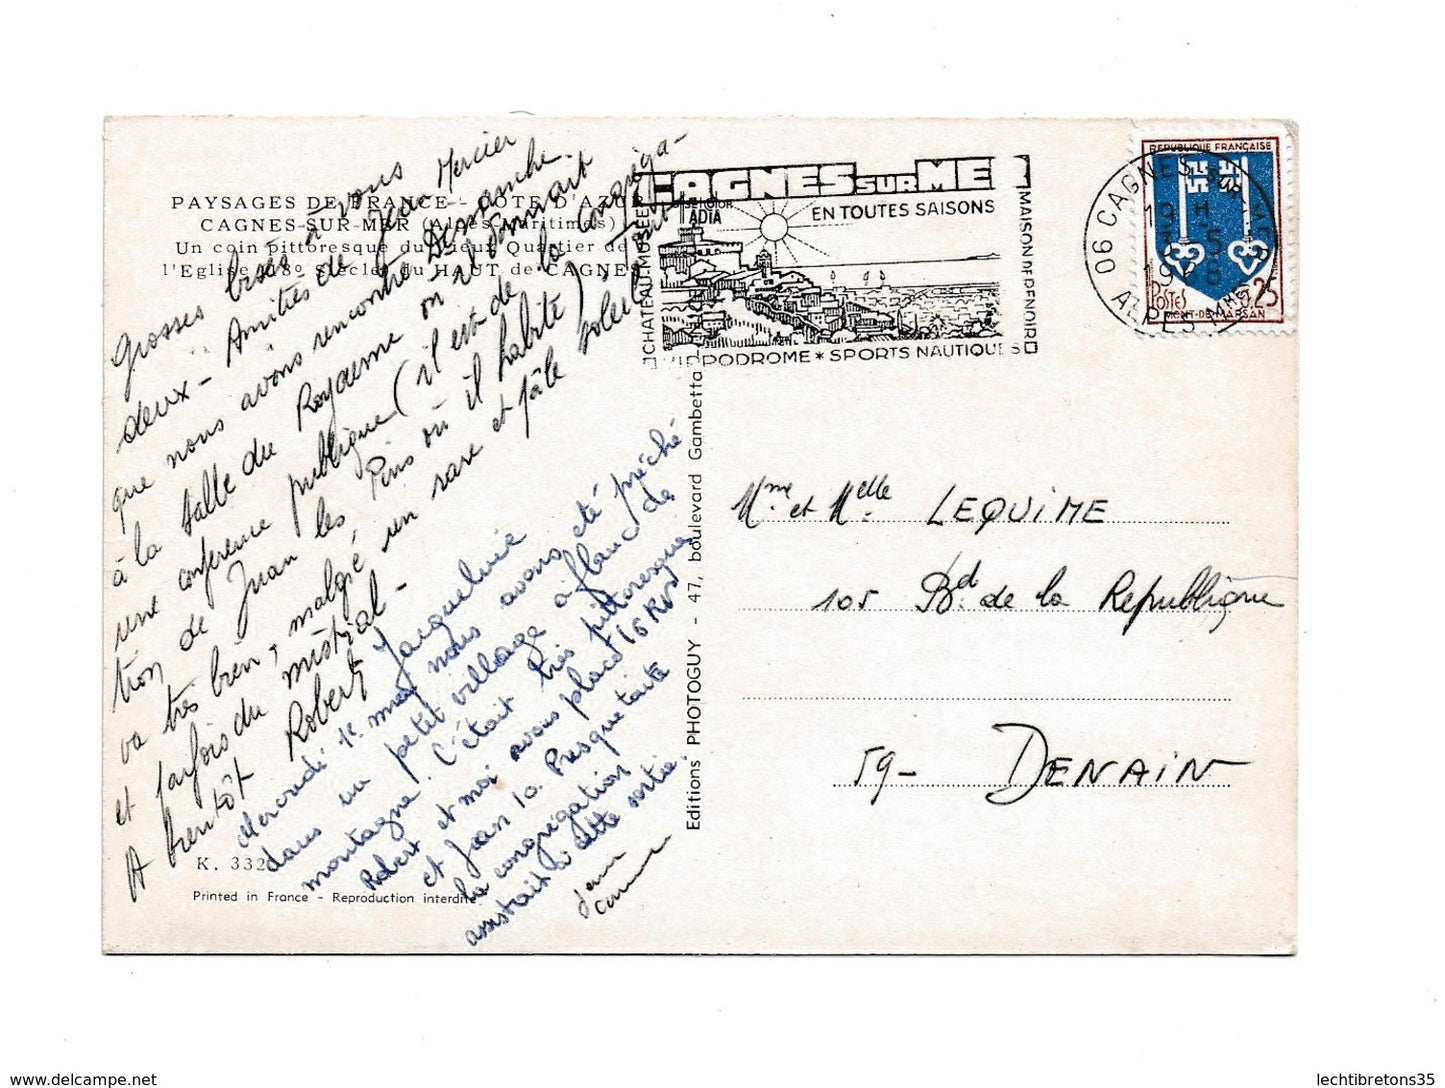 PAYSAGES DE FRANCE - CÔTE D'AZUR
CAGNES-SUR-MER (Alpes-Maritimes)
Un coin pittoresque du Vieux Quartier de
l'Eglise 18º Siècle du HAUT de CAGNES
Grosses bises à vous
deux - Amitiés de Jean Mercier
que nous avons rencontré Dimanche
à la salle du Royaume où il donnait
une conférence publique (il est de la congréga-
tion de Juan les Pins où il habite). Tout
va très bien, malgré un rare et pâle soleil
et parfois du mistral -
A bientôt Robert Jacqueline
Mercredi 1e mai nous avons été prêché
dans un petit village à flanc de
montagne. C'était très pittoresque
Robert et moi avons placé 16 RV
et Jean 10. Presque toute
la congrégation
assistait à cette sortie.
K. 332
Printed in France - Reproduction interdite
Editions PHOTOGUY - 47, boulevard Gambetta
CAGNES SUR MER
EN TOUTES SAISONS
CHATEAU-MUSEE
MAISON DE RENOIR
HIPPODROME * SPORTS NAUTIQUES
06 CAGNES SUR MER
ALPES MMES
REPUBLIQUE FRANÇAISE
POSTES
0,25
MONT-DE-MARSAN
Mme et Melle LEQUIME
105 Bd de la Republique
59- DENAIN
lechtibretons35